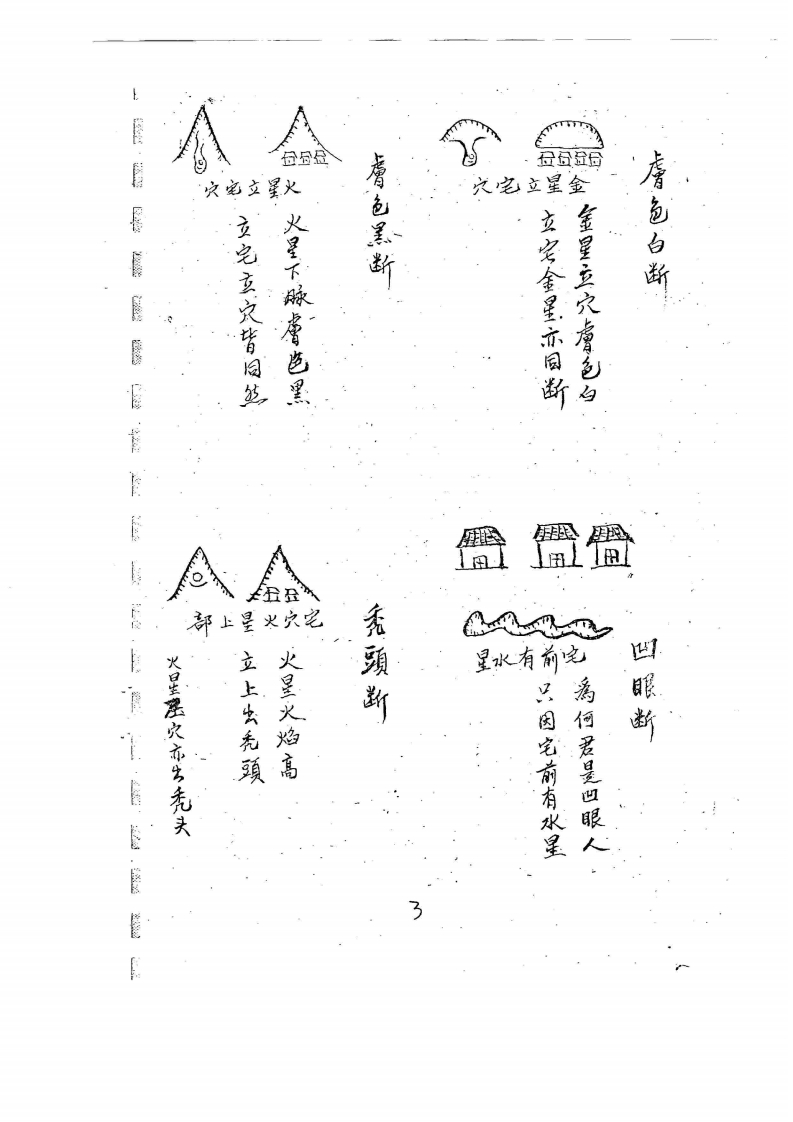 膚色白断
金星立宅穴
金星立穴膚色白
立宅金星亦同断
膚色黑断
火星立宅穴
火星下脉膚色黑
立宅立穴皆同然
凹眼断
宅前有水星
為何君是凹眼人
只因宅前有水星
禿頭断
宅穴火星上部
火星火焰高
立上出禿頭
火星穴亦出禿头
3